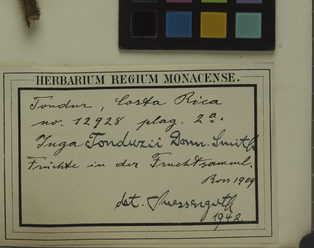 HERBARIUM REGIUM MONACENSE.
Tonduz, Costa Rica
no. 12928 plag. 2a.
Inga Tonduzii Donn. Smith
Früchte in der Fruchtsamml.
1909
det. Suessenguth
1942.